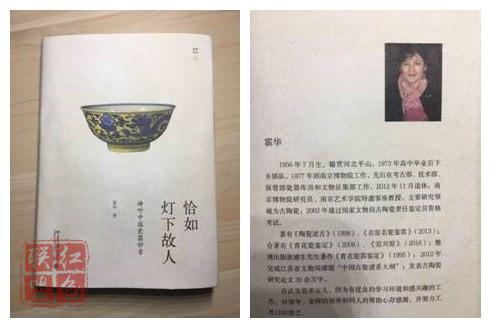 恰如
灯下故人
谛听中国瓷器妙音
霍华 著
红色
联包
霍华
1956年7月生，籍贯河北平山，1973年高中毕业后下
乡插队，1977年到南京博物院工作，先后在考古部、技术部、
保管部瓷器库房和文物征集部工作，2012年11月退休。南
京博物院研究员、南京艺术学院特邀客座教授，主要研究领
域为古陶瓷；2002年通过国家文物局古陶瓷责任鉴定员资格
考试。
著有《陶瓷述古》（1998）、《名窑名瓷鉴赏》（2013）；
合著有《青花瓷鉴定》（2008）、《宜兴窑》（2016）；整
理出版张浦生先生著作《青花瓷器鉴定》（1995）；2012年
完成江苏省文物局课题“中国古瓷谱系大纲”；发表古陶瓷
研究论文30余万字。
自认为最幸运儿，因为有优良的学习环境和感兴趣的工
作，对领导、老师的培养和同人的帮助心存感激，并努力工
作以回报之。